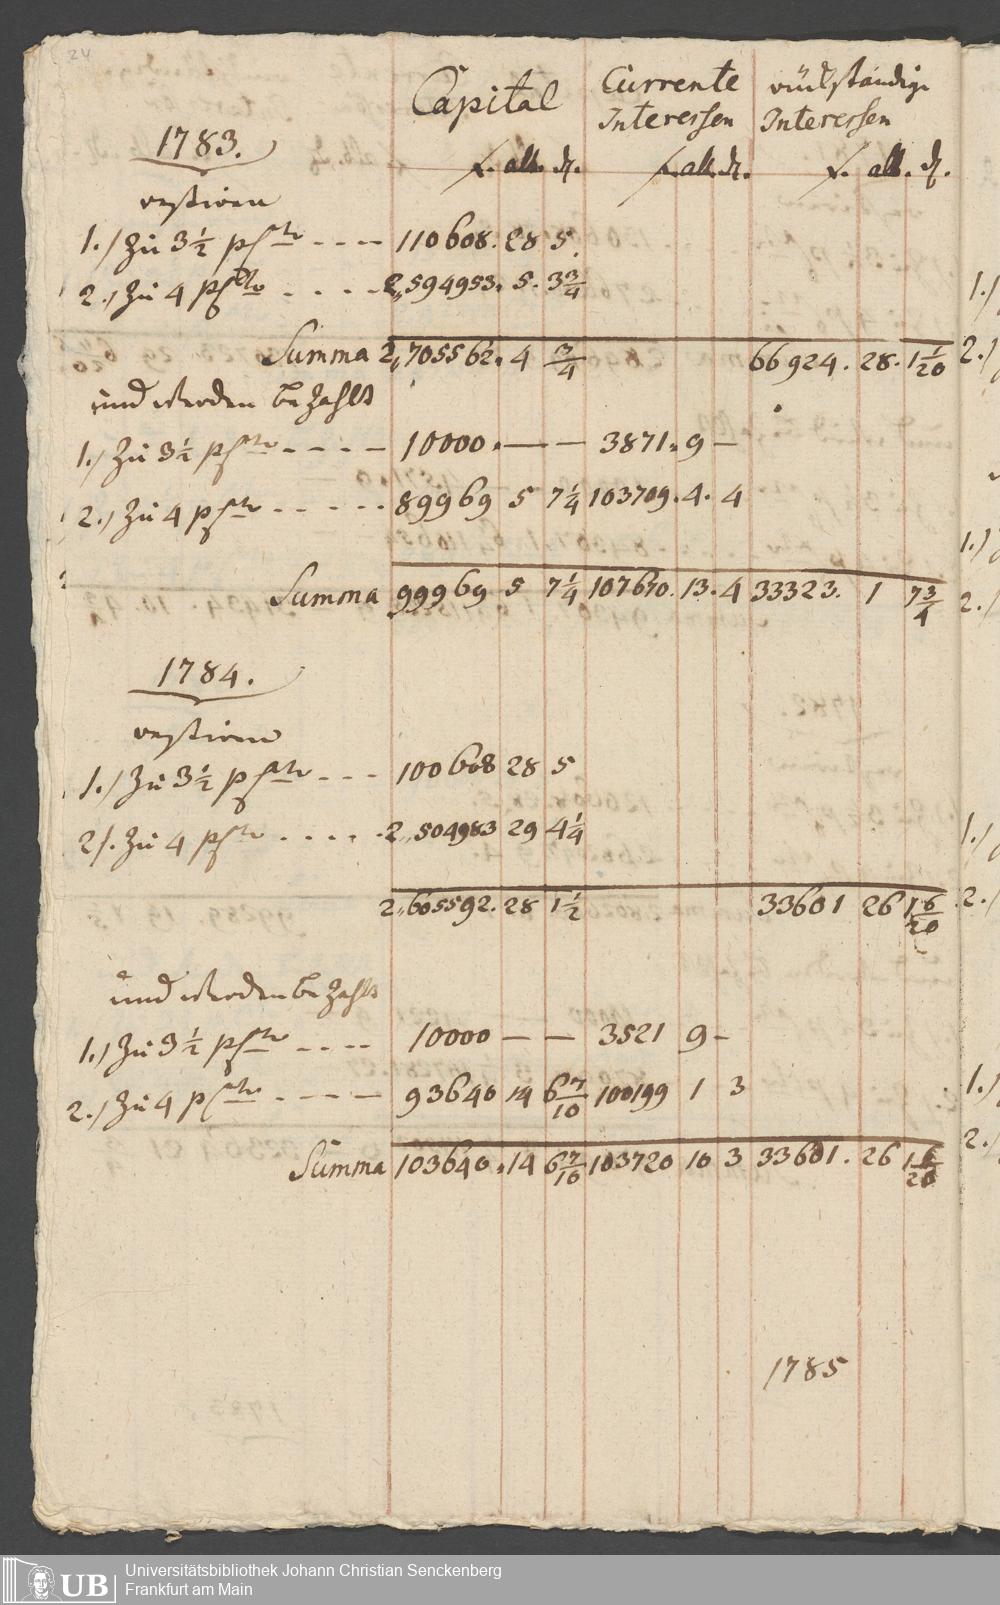 24
Capital
Currente Interessen
rückständige Interessen
f. alb. d. f. alb. d. f. alb. d.
1783.
restiren
1.) Zu 3 1/2 pCto ---- 110608. 28 5.
2.) Zu 4 pCto .... 2,,594953. 5. 3 3/4
Summa 2,,705562. 4 3/4 66924. 28. 1 1/20
und werden bezahlt
1.) Zu 3 1/2 pCto ---- 10000. — — 3871. 9 —
2.) Zu 4 pCto ----- 89969 5 7 1/4 103709. 4. 4
Summa 99969 5 7 1/4 107670. 13. 4 33323. 1 7 3/4
1784.
restiren
1.) Zu 3 1/2 pCto --- 100608 28 5
2.) Zu 4 pCto ..... 2,,504983 29 4 1/4
2,,605592. 28 1 1/2 33601 26 1 6/20
und werden bezahlt
1.) Zu 3 1/2 pCto ---- 10000 — — 3521 9 —
2.) Zu 4 pCto ---- 93640 14 6 7/10 100199 1 3
Summa 103640. 14 6 7/10 103720 10 3 33601. 26 1 6/20
1785
1.)
2.)
1.)
2.)
1.)
2.)
1.)
2.)
UB
Universitätsbibliothek Johann Christian Senckenberg
Frankfurt am Main